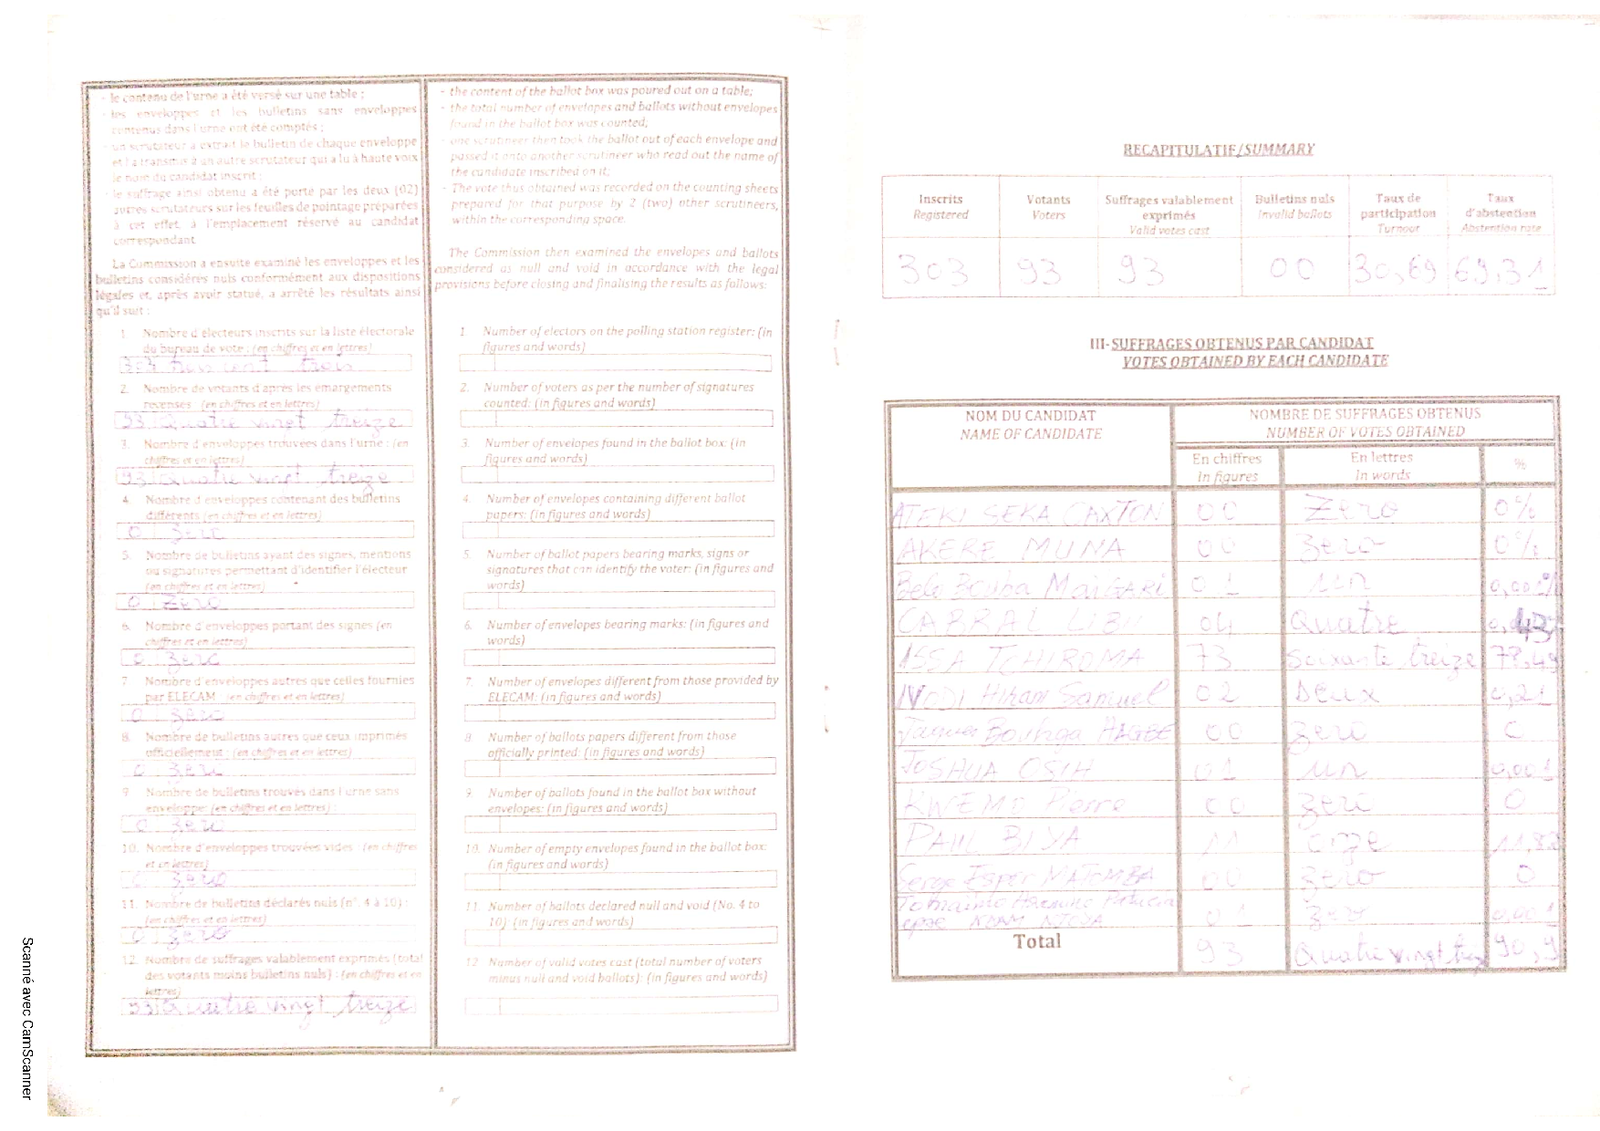 - le contenu de l'urne a été versé sur une table ;
- les enveloppes et les bulletins sans enveloppes
contenus dans l'urne ont été comptés ;
- un scrutateur a extrait le bulletin de chaque enveloppe
et l'a transmis à un autre scrutateur qui a lu à haute voix
le nom du candidat inscrit ;
- le suffrage ainsi obtenu a été porté par les deux (02)
autres scrutateurs sur les feuilles de pointage préparées
à cet effet, à l'emplacement réservé au candidat
correspondant
La Commission a ensuite examiné les enveloppes et les
bulletins considérés nuls conformément aux dispositions
légales et, après avoir statué, a arrêté les résultats ainsi
qu'il suit :
1. Nombre d'électeurs inscrits sur la liste électorale
du bureau de vote : (en chiffres et en lettres)
303 trois cent trois
2. Nombre de votants d'après les émargements
recensés : (en chiffres et en lettres)
93 Quatre vingt treize
3. Nombre d'enveloppes trouvées dans l'urne : (en
chiffres et en lettres)
93 Quatre vingt treize
4. Nombre d'enveloppes contenant des bulletins
différents (en chiffres et en lettres)
0 zero
5. Nombre de bulletins ayant des signes, mentions
ou signatures permettant d'identifier l'électeur
(en chiffres et en lettres)
0 zero
6. Nombre d'enveloppes portant des signes (en
chiffres et en lettres)
0 zero
7 Nombre d'enveloppes autres que celles fournies
par ELECAM (en chiffres et en lettres)
0 zero
8. Nombre de bulletins autres que ceux imprimés
officiellement : (en chiffres et en lettres)
0 zero
9. Nombre de bulletins trouvés dans l'urne sans
enveloppe: (en chiffres et en lettres) :
0 zero
10. Nombre d'enveloppes trouvées vides : (en chiffres
et en lettres)
0 zero
11. Nombre de bulletins déclarés nuls (n°. 4 à 10) :
(en chiffres et en lettres)
0 zero
12. Nombre de suffrages valablement exprimés (total
des votants moins bulletins nuls) : (en chiffres et en
lettres)
93 Quatre vingt treize
- the content of the ballot box was poured out on a table;
- the total number of envelopes and ballots without envelopes
found in the ballot box was counted;
- one scrutineer then took the ballot out of each envelope and
passed it onto another scrutineer who read out the name of
the candidate inscribed on it;
- The vote thus obtained was recorded on the counting sheets
prepared for that purpose by 2 (two) other scrutineers,
within the corresponding space.
The Commission then examined the envelopes and ballots
considered as null and void in accordance with the legal
provisions before closing and finalising the results as follows:
1 Number of electors on the polling station register: (in
figures and words)
2. Number of voters as per the number of signatures
counted: (in figures and words)
3. Number of envelopes found in the ballot box: (in
figures and words)
4. Number of envelopes containing different ballot
papers: (in figures and words)
5. Number of ballot papers bearing marks, signs or
signatures that can identify the voter: (in figures and
words)
6. Number of envelopes bearing marks: (in figures and
words)
7. Number of envelopes different from those provided by
ELECAM: (in figures and words)
8 Number of ballots papers different from those
officially printed: (in figures and words)
9. Number of ballots found in the ballot box without
envelopes: (in figures and words)
10. Number of empty envelopes found in the ballot box:
(in figures and words)
11. Number of ballots declared null and void (No. 4 to
10): (in figures and words)
12 Number of valid votes cast (total number of voters
minus null and void ballots): (in figures and words)
RECAPITULATIF/SUMMARY
Inscrits Registered Votants Voters Suffrages valablement exprimés Valid votes cast Bulletins nuls Invalid ballots Taux de participation Turnout Taux d'abstention Abstention rate
303 93 93 00 30,69 69,31
III- SUFFRAGES OBTENUS PAR CANDIDAT
VOTES OBTAINED BY EACH CANDIDATE
NOM DU CANDIDAT NOMBRE DE SUFFRAGES OBTENUS
NAME OF CANDIDATE NUMBER OF VOTES OBTAINED
En chiffres En lettres %
In figures In words
ATEKI SEKA CAXTON 00 Zero 0%
AKERE MUNA 00 zero 0%
Belo Bouba MAIGARI 01 un 0,001%
CABRAL LIBII 04 Quatre
ISSA TCHIROMA 73 soixante treize 78,49
NODI Hiram Samuel 02 Deux 0,21
Bouhga HAGBE 00 zero 0
JOSHUA OSIH 01 un 0,001
KWEMO Pierre 00 zero 0
PAUL BIYA 11 onze 11,82
Serge Espoir MATOMBA 00 zero 0
Tomaïno Hermine Patricia
epse NDAM NJOYA 01 zero 0,001
Total 93 Quatre vingt 90,9
Scanné avec CamScanner